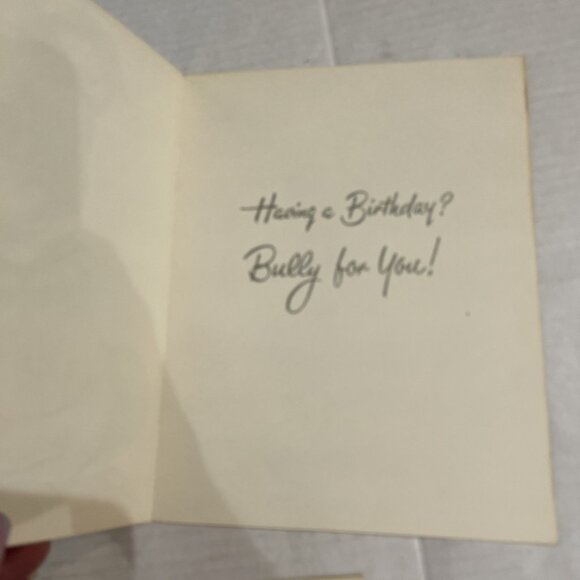 Having a Birthday?
Bully for You!